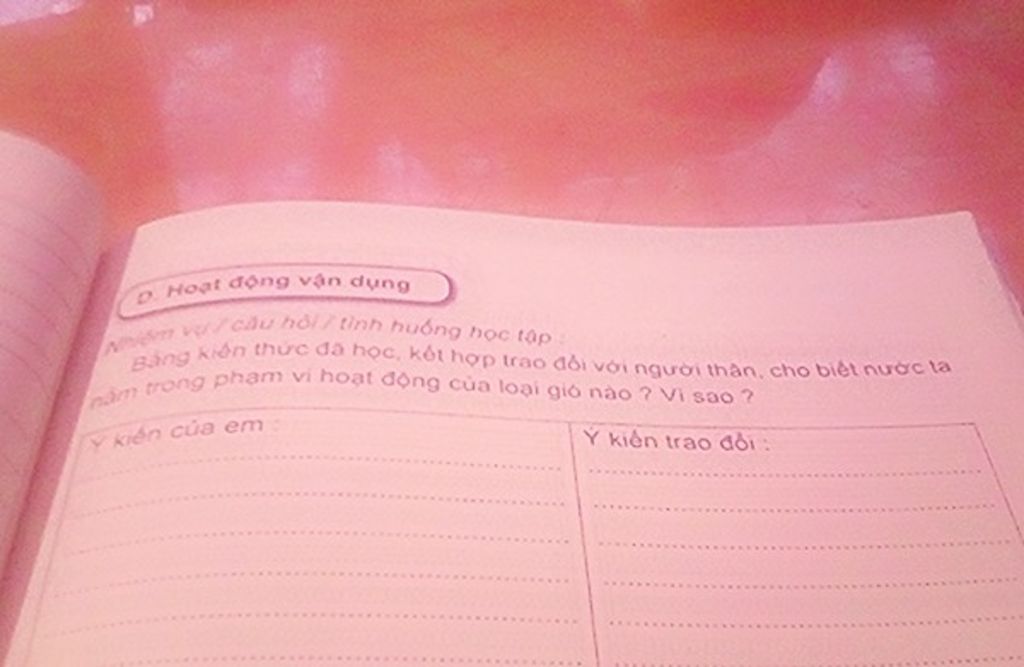 D. Hoạt động vận dụng
Nhiệm vụ / câu hỏi / tình huống học tập :
Bằng kiến thức đã học, kết hợp trao đổi với người thân, cho biết nước ta
nằm trong phạm vi hoạt động của loại gió nào ? Vì sao ?
Ý kiến của em :
Ý kiến trao đổi :